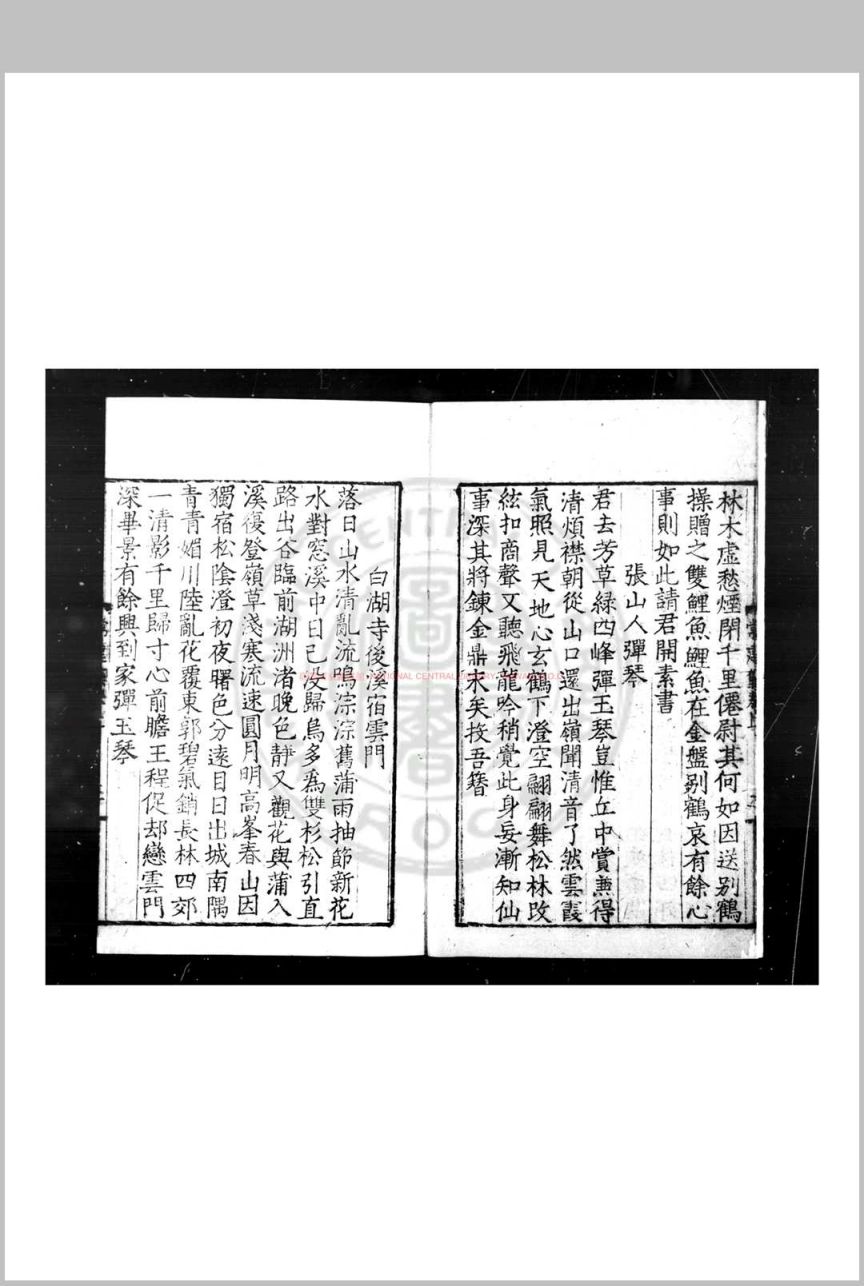 林木虛愁煙閉千里僊尉其何如因送别鶴
操贈之雙鯉魚鯉魚在金盤别鶴哀有餘心
事則如此請君開素書
張山人彈琴
君去芳草緑四峰彈玉琴豈惟丘中賞兼得
清煩襟朝從山口還出嶺聞清音了然雲霞
氣照見天地心玄鶴下澄空翩翩舞松林改
絃扣商聲又聽飛龍吟稍覺此身妄漸知仙
事深其將鍊金鼎永矣投吾簪
白湖寺後溪宿雲門
落日山水清亂流鳴淙淙舊蒲雨抽節新花
水對窓溪中日已没歸鳥多爲雙杉松引直
路出谷臨前湖洲渚晚色靜又觀花與蒲入
溪復登嶺草淺寒流速圓月明高峯春山因
獨宿松陰澄初夜曙色分遠目日出城南隅
青青媚川陸亂花覆東郭碧氣銷長林四郊
一清影千里歸寸心前瞻王程促却戀雲門
深畢景有餘興到家彈玉琴
NATIONAL CENTRAL LIBRARY